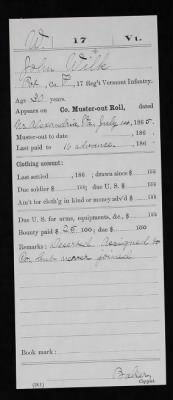 W. 17 Vt.
John Wilk
Pvt., Co. F, 17 Reg't Vermont Infantry.
Age 20 years.
Appears on Co. Muster-out Roll, dated
Nr Alexandria, Va, July 14, 1865.
Muster-out to date , 186 .
Last paid to No advance, 186 .
Clothing account:
Last settled , 186 ; drawn since $ 100
Due soldier $ 100; due U. S. $ 100
Am't for cloth'g in kind or money adv'd $ 100
Due U. S. for arms, equipments, &c., $ 100
Bounty paid $ 25 100; due $ 100
Remarks: Deserted. Assigned to
Co. but never joined
Book mark:
(361)
Baker,
Copyist.